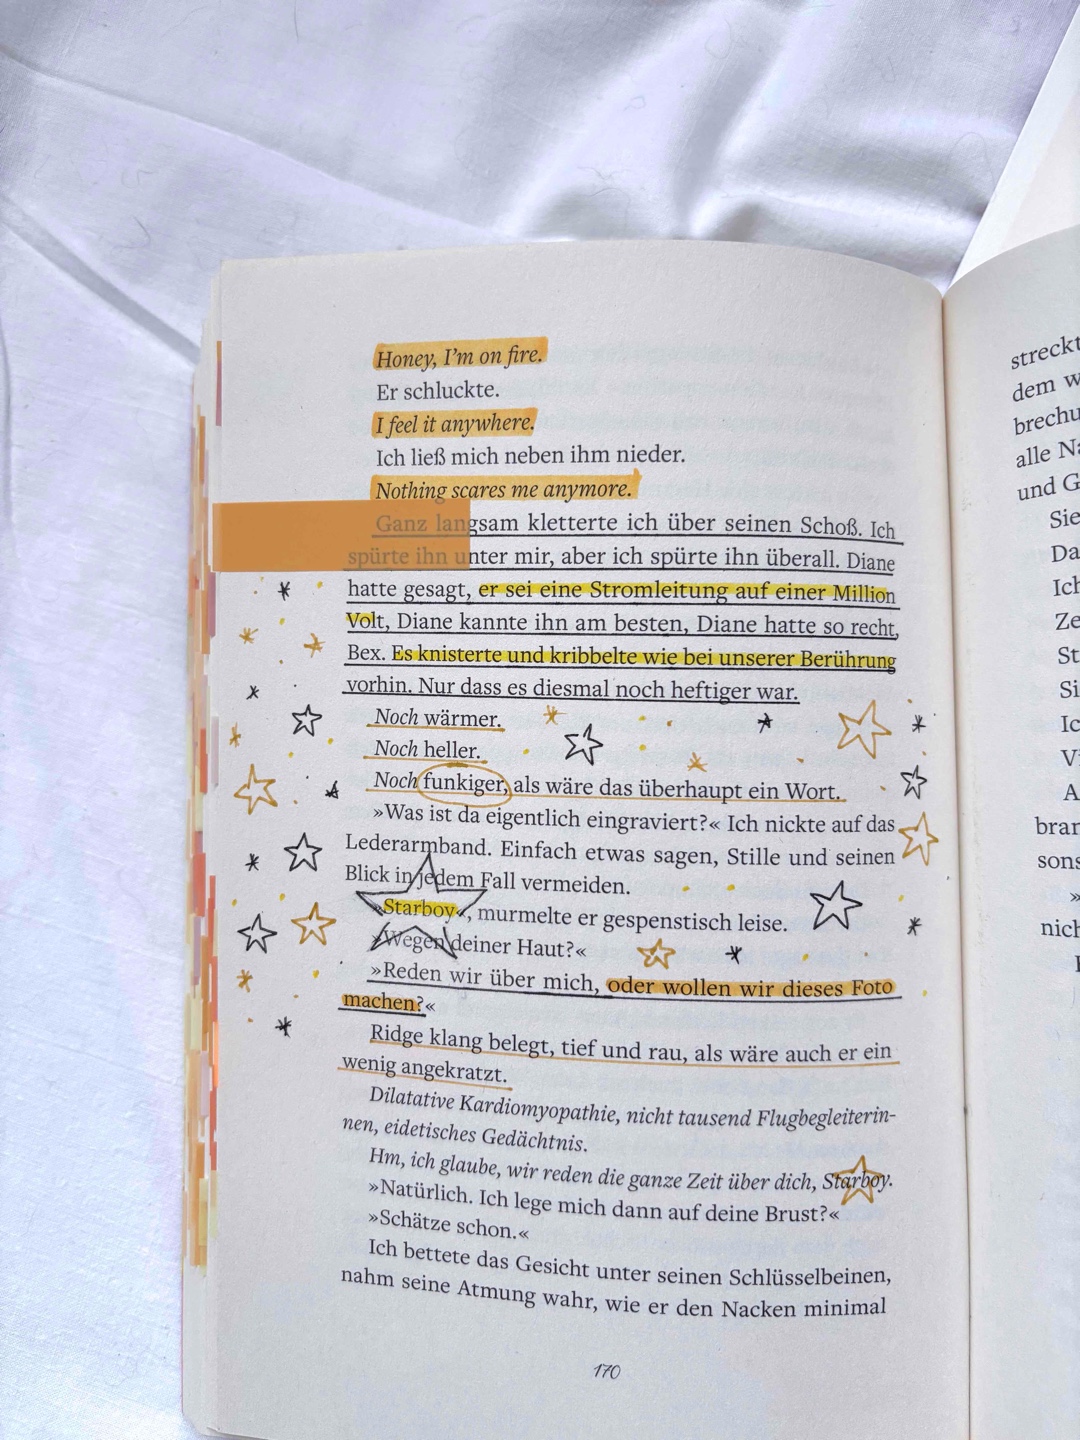 Honey, I'm on fire.
Er schluckte.
I feel it anywhere.
Ich ließ mich neben ihm nieder.
Nothing scares me anymore.
Ganz langsam kletterte ich über seinen Schoß. Ich
spürte ihn unter mir, aber ich spürte ihn überall. Diane
hatte gesagt, er sei eine Stromleitung auf einer Million
Volt, Diane kannte ihn am besten, Diane hatte so recht,
Bex. Es knisterte und kribbelte wie bei unserer Berührung
vorhin. Nur dass es diesmal noch heftiger war.
Noch wärmer.
Noch heller.
Noch funkiger, als wäre das überhaupt ein Wort.
»Was ist da eigentlich eingraviert?« Ich nickte auf das
Lederarmband. Einfach etwas sagen, Stille und seinen
Blick in jedem Fall vermeiden.
»Starboy«, murmelte er gespenstisch leise.
»Wegen deiner Haut?«
»Reden wir über mich, oder wollen wir dieses Foto
machen?«
Ridge klang belegt, tief und rau, als wäre auch er ein
wenig angekratzt.
Dilatative Kardiomyopathie, nicht tausend Flugbegleiterin-
nen, eidetisches Gedächtnis.
Hm, ich glaube, wir reden die ganze Zeit über dich, Starboy.
»Natürlich. Ich lege mich dann auf deine Brust?«
»Schätze schon.«
Ich bettete das Gesicht unter seinen Schlüsselbeinen,
nahm seine Atmung wahr, wie er den Nacken minimal
170
streckt
dem w
brechu
alle Na
und G
Sie
Da
Ich
Ze
St
Si
Ic
V
A
bran
sons
»
nich